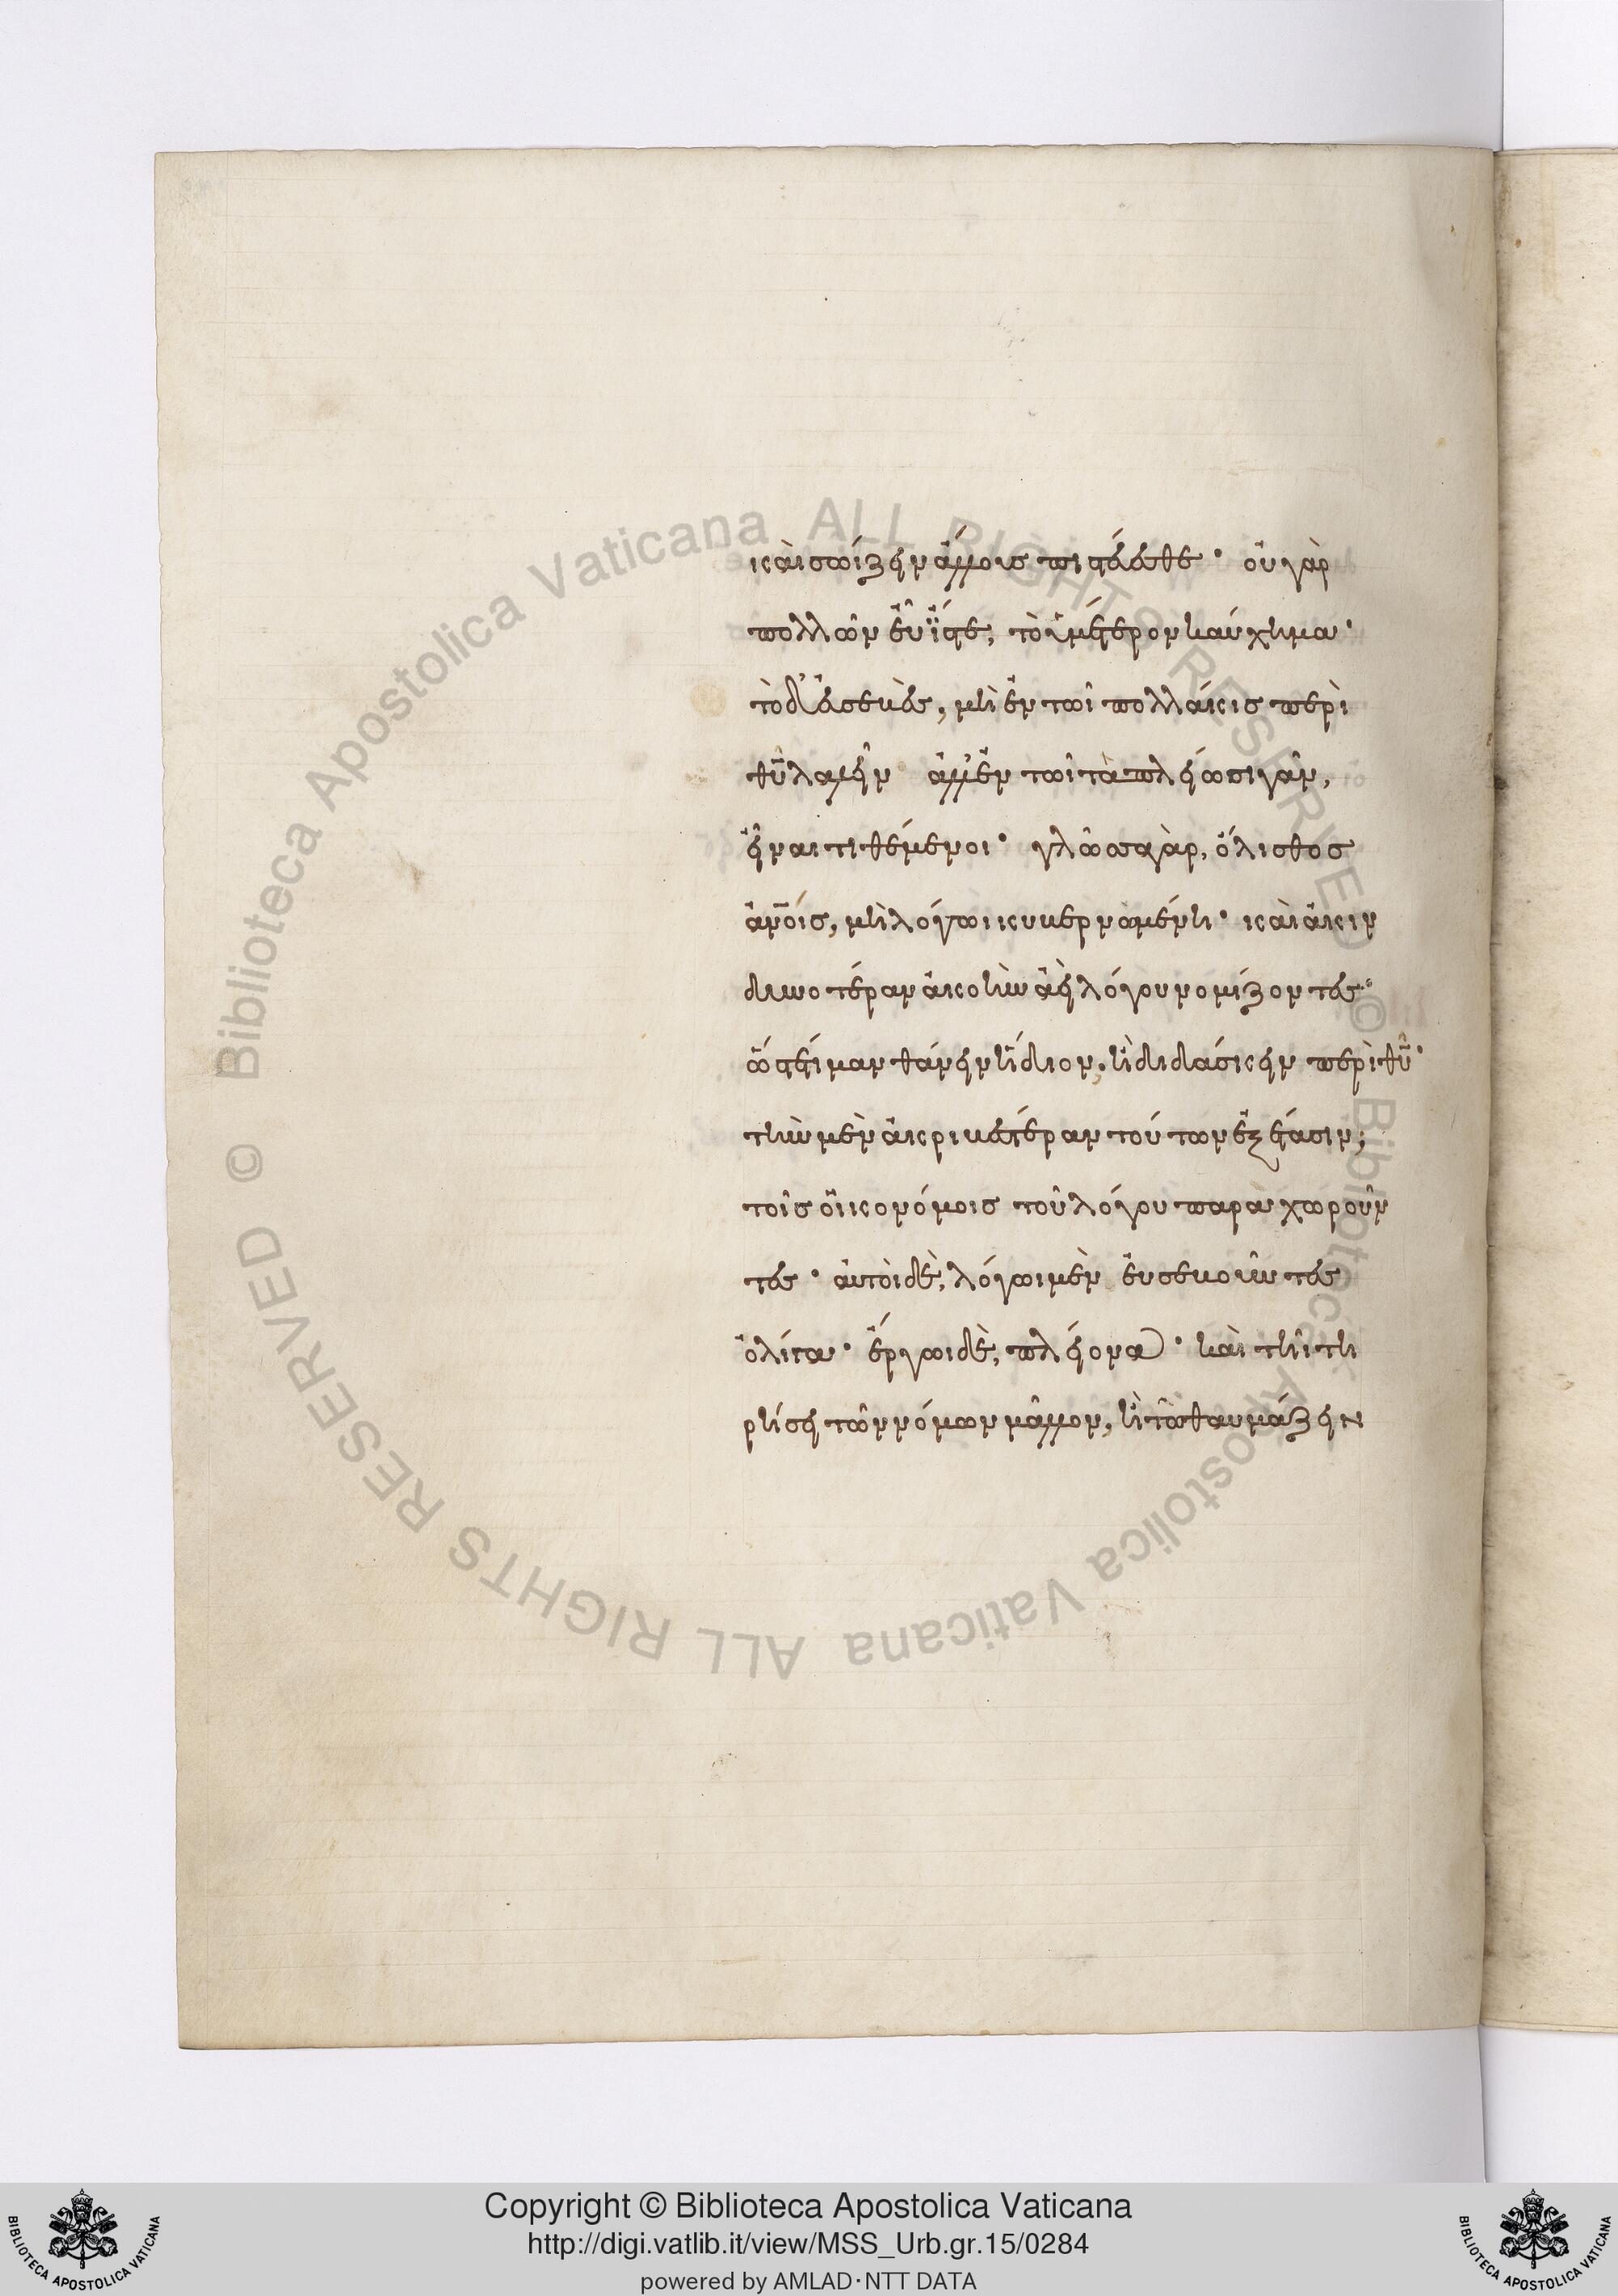 καὶ σωίζειν ἄλλους πιστεύεσθε· οὐ γὰρ
πολλῶν εὖ ἴστε, τὸ ἡμέτερον καύχημα·
τὸ δ' εὐσεβὲς, μὴ ἐν τῶι πολλάκις περὶ
θ̅υ̅ λαλεῖν ἀλλ' ἐν τῶι τὰ πλείω σιγᾶν,
εἶναι τιθέμενοι· γλῶσσα γὰρ, ὄλισθος
ἀν̅οις, μὴ λόγωι κυβερνωμένη· καὶ ἀκιν
δυνοτέραν ἀκοὴν ἀεὶ λόγου νομίζοντες·
ὥστέ τι μανθάνειν ἥδιον, ἢ διδάσκειν περὶ θ̅υ̅·
τὴν μὲν ἀκριβεστέραν τούτων ἐξέτασιν,
τοῖς οἰκονόμοις τοῦ λόγου παραχωροῦν
τες· αὐτοὶ δὲ, λόγωι μὲν εὐσεβοῦντες
ὀλίγα· ἔργωι δὲ, πλείονα· καὶ τῆι τη
ρήσει τῶν νόμων μᾶλλον, ἢ τῶι θαυμάζειν
Copyright © Biblioteca Apostolica Vaticana
http://digi.vatlib.it/view/MSS_Urb.gr.15/0284
powered by AMLAD·NTT DATA
BIBLIOTECA APOSTOLICA VATICANA
BIBLIOTECA APOSTOLICA VATICANA
© Biblioteca Apostolica Vaticana ALL RIGHTS RESERVED © Biblioteca Apostolica Vaticana ALL RIGHTS RESERVED